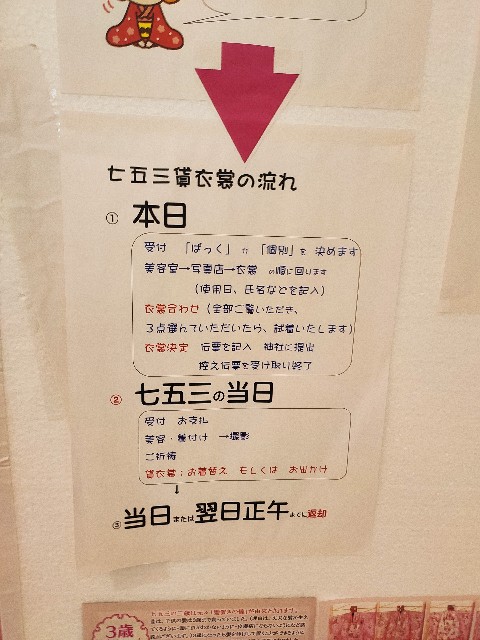 七五三貸衣裳の流れ
① 本日
受付 「ぱっく」か「個別」を 決めます
美容室→写真店→衣裳 の順に回ります
(使用日、氏名などを記入)
衣裳合わせ(全部ご覧いただき、
3点選んでいただいたら、試着いたします)
衣裳決定 伝票を記入 神社に提出
控え伝票を受け取り終了
② 七五三の当日
受付 お支払
美容・着付け →撮影
ご祈祷
貸衣裳:お着替え もしくは お出かけ
↓
③ 当日または翌日正午までに返却
3歳